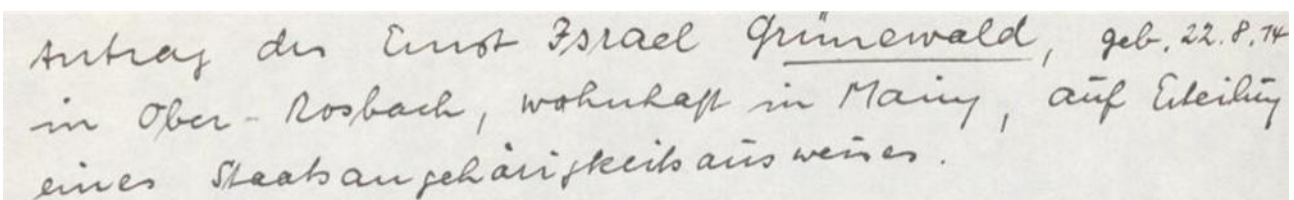 Antrag des Ernst Israel Grünewald, geb. 22.8.14
in Ober-Rosbach, wohnhaft in Mainz, auf Erteilung
eines Staatsangehörigkeitsausweises.